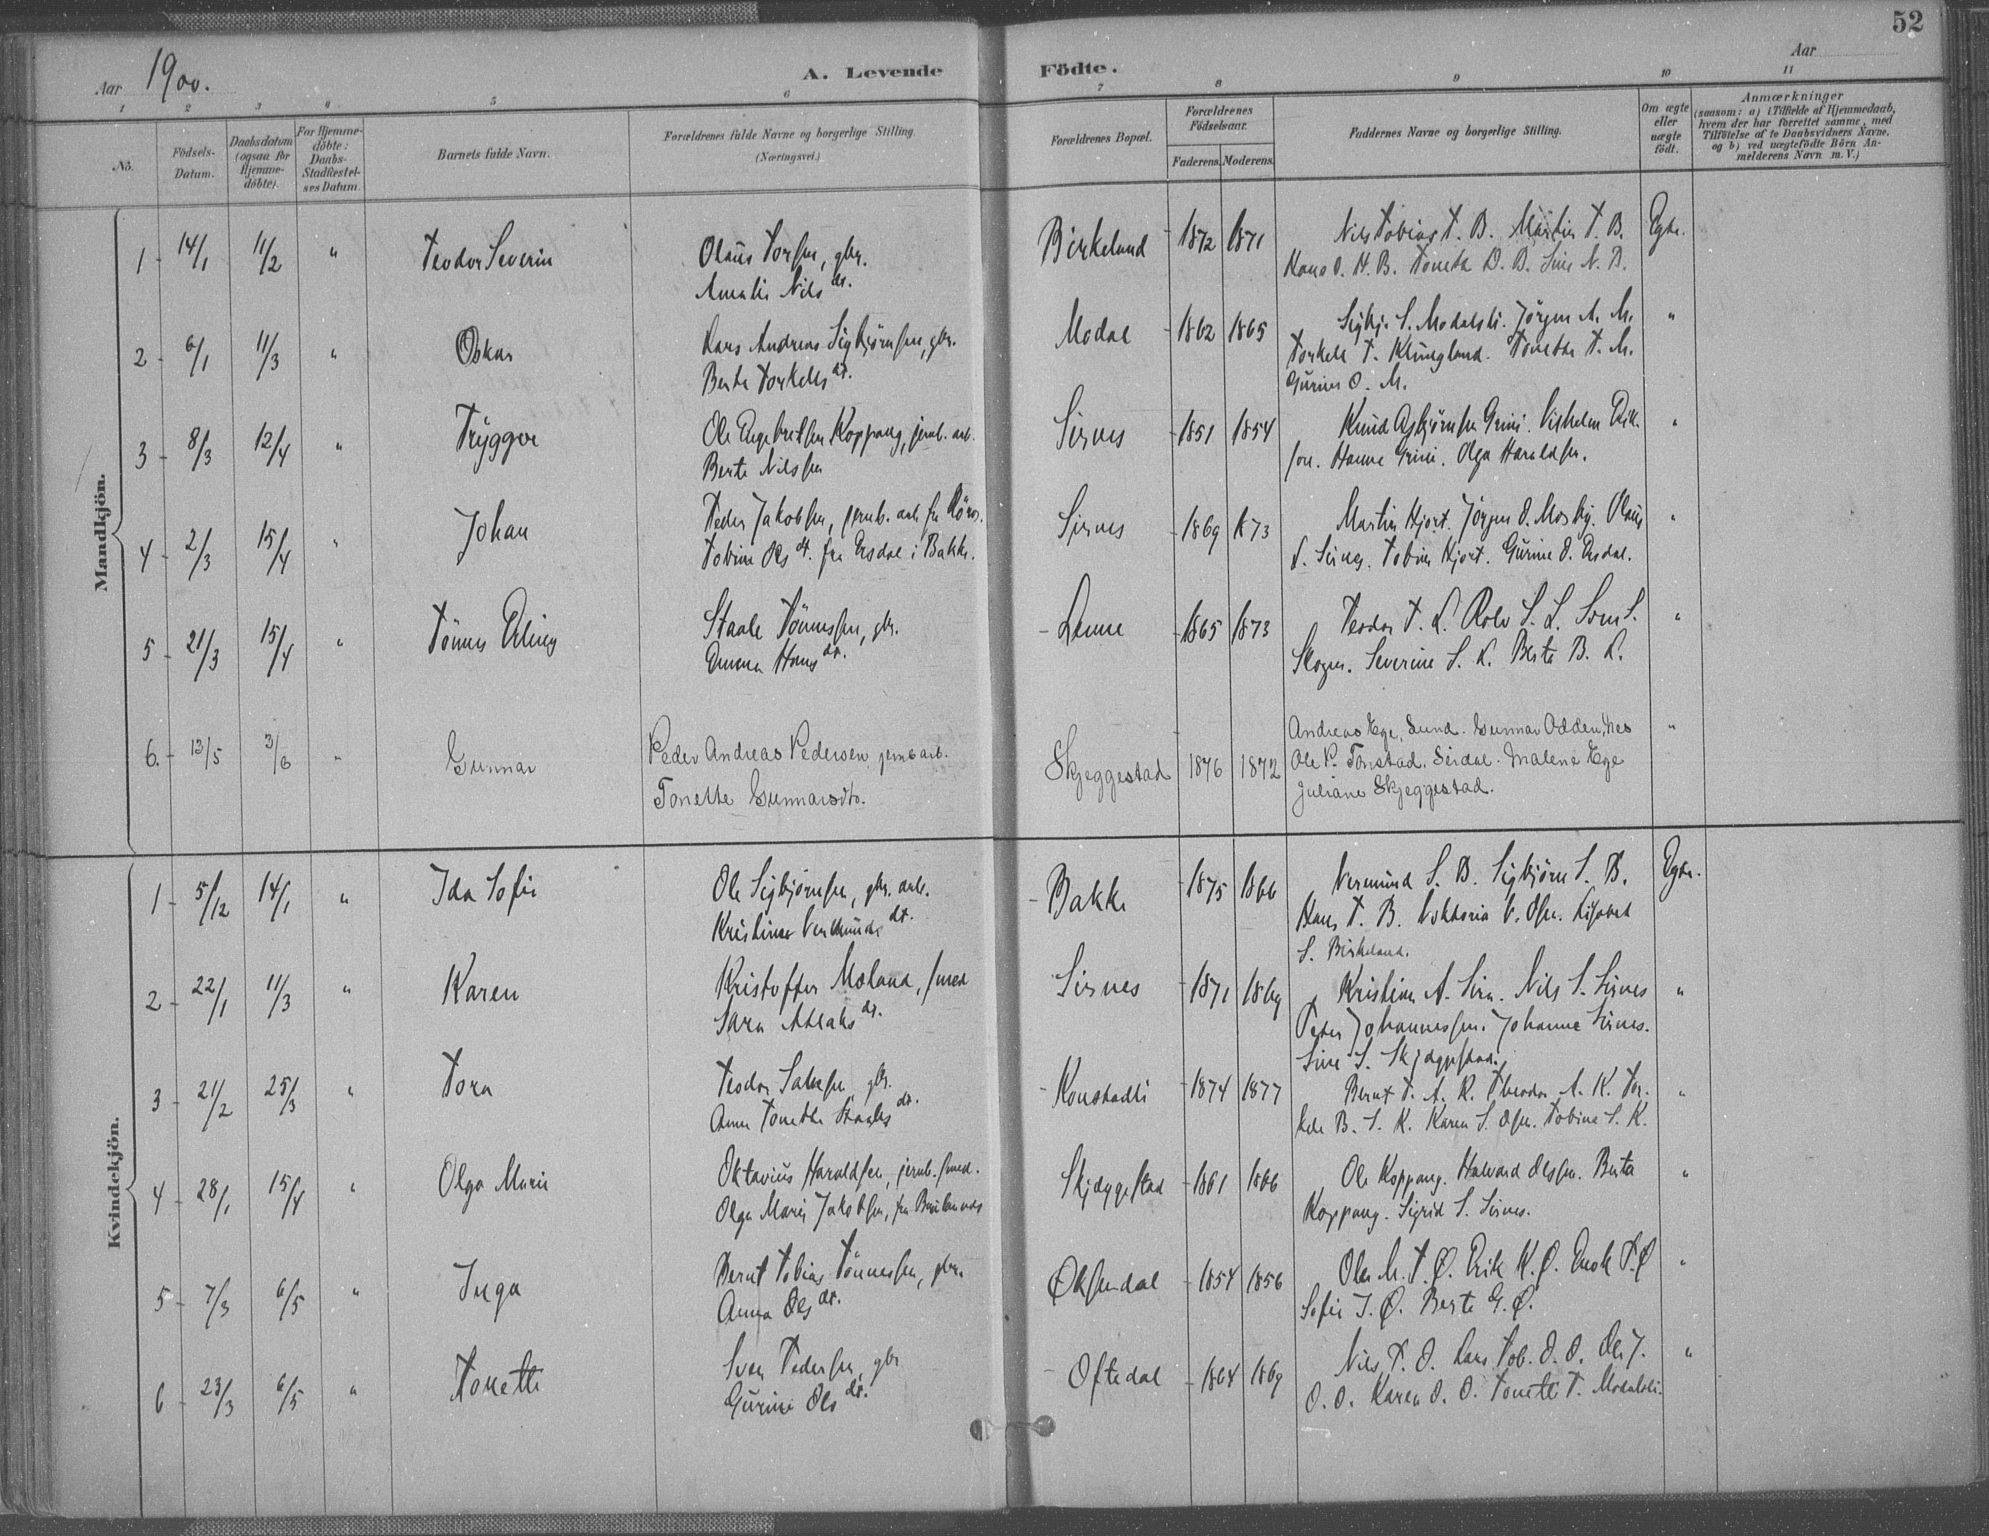 52
Aar 1900. A. Levende Födte. Aar
1 2 3 4 5 6 7 8 9 10 11
No. Födsels-Datum. Daabsdatum (ogsaa for Hjemme-döbte). For Hjemme-döbte: Daabs-Stadfæstel-ses Datum. Barnets fulde Navn. Forældrenes fulde Navne og borgerlige Stilling. (Næringsvei.) Forældrenes Bopæl. Forældrenes Födselsaar. Faderens. Moderens. Faddernes Navne og borgerlige Stilling. Om ægte eller uægte födt. Anmærkninger (saasom: a) i Tilfælde af Hjemmedaab, hvem der har forrettet samme, med Tilföielse af to Daabsvidners Navne, og b) ved uægtefödte Börn An-melderens Navn m. V.)
Mandkjön.
1 14/1 11/2 " Teodor Severin Olaus Torsen, gbr. Birkeland 1872 1871 Nils Tobias T. B. Martin T. B. Egte.
Amalie Nilsdr. Hans O. H. B. Tonetta O. B. Sine N. B.
2 6/1 11/3 " Oskar Lars Andreas Sigbjørnsen, gbr. Modal 1862 1865 Sigbj. S. Modalsli. Jörgen A. M. "
Berta Torkelsdr. Torkele T. Klungland. Tonette T. M.
Gurine O. M.
3 8/3 12/4 " Trygve Ole Engebretsen Koppang, jernb. arb. Sirnes 1851 1854 Knud Asbjørnsen Grini. Vilhelm Erik- "
Berte Nilssen son. Hanne Grini. Olga Haraldsen.
4 2/3 15/4 " Johan Peder Jakobsen, jernb. arb. fra Röros. Sirnes 1869 1873 Martin Hjort. Jörgen O. Mosby. Olaus "
Tobine Olsdr. fra Ersdal i Bakke. S. Sirnes. Tobine Hjort. Gurine O. Ersdal.
5 21/3 15/4 " Tönnes Erling Staale Tönnessen, gbr. Lunne 1865 1873 Teodor T. L. Rolv S. L. Sven S. "
Emma Hansdr. Skogen. Severine S. L. Berta B. L.
6. 13/5 3/6 " Gunnar Peder Andreas Pedersen jernb arb. Skjeggestad 1876 1872 Andreas Ege, Lund. Gunnar Odden, Nes "
Tonette Gunnarsdtr. Ole P. Tonstad, Sirdal. Malene Ege
Juliane Skjeggestad.
Kvindekjön.
1 5/12 14/1 " Ida Sofie Ole Sigbjørnsen, gbr. arb. Bakke 1875 1866 Vermund S. B. Sigbjörn S. B. Egte.
Kristine Vermundsdr. Hans T. B. Viktoria V. Olsen. Lisabet
S. Birkeland.
2 22/1 11/3 " Karen Kristoffer Moland, smed Sirnes 1871 1869 Kristine A. Sirn. Nils S. Sirnes "
Sara Atlaksdr. Peder Johannessen. Johanne Sirnes.
Sine S. Skjeggestad.
3 21/2 25/3 " Tora Teodor Salvesen, gbr. Konstadli 1874 1877 Bernt T. A. K. Theodor A. K. Tor- "
Anne Tonette Staalesdr. kele B. S. K. Karen S. Olsen. Tobine S. K.
4 28/1 15/4 " Olga Marie Oktavius Haraldsen, jernb. smed. Skjeggestad 1861 1866 Ole Koppang. Halvard Olsen. Berta "
Olga Marie Jakobsen, fra Koppang. Sigrid S. Sirnes.
5 7/3 6/5 " Inga Bernt Tobias Tönnessen, gbr. Øksendal 1854 1856 Ole M. T. Ø. Erik K. Ø. Enok T. Ø "
Anna Olsdr. Sofie J. Ø. Berte G. Ø.
6 23/3 6/5 " Tonette Sven Pedersen, gbr Oftedal 1864 1869 Nils P. O. Lars Tob. O. O. Ole J. "
Gurine Olsdr. O. O. Karen O. O. Tonette T. Modalsli.